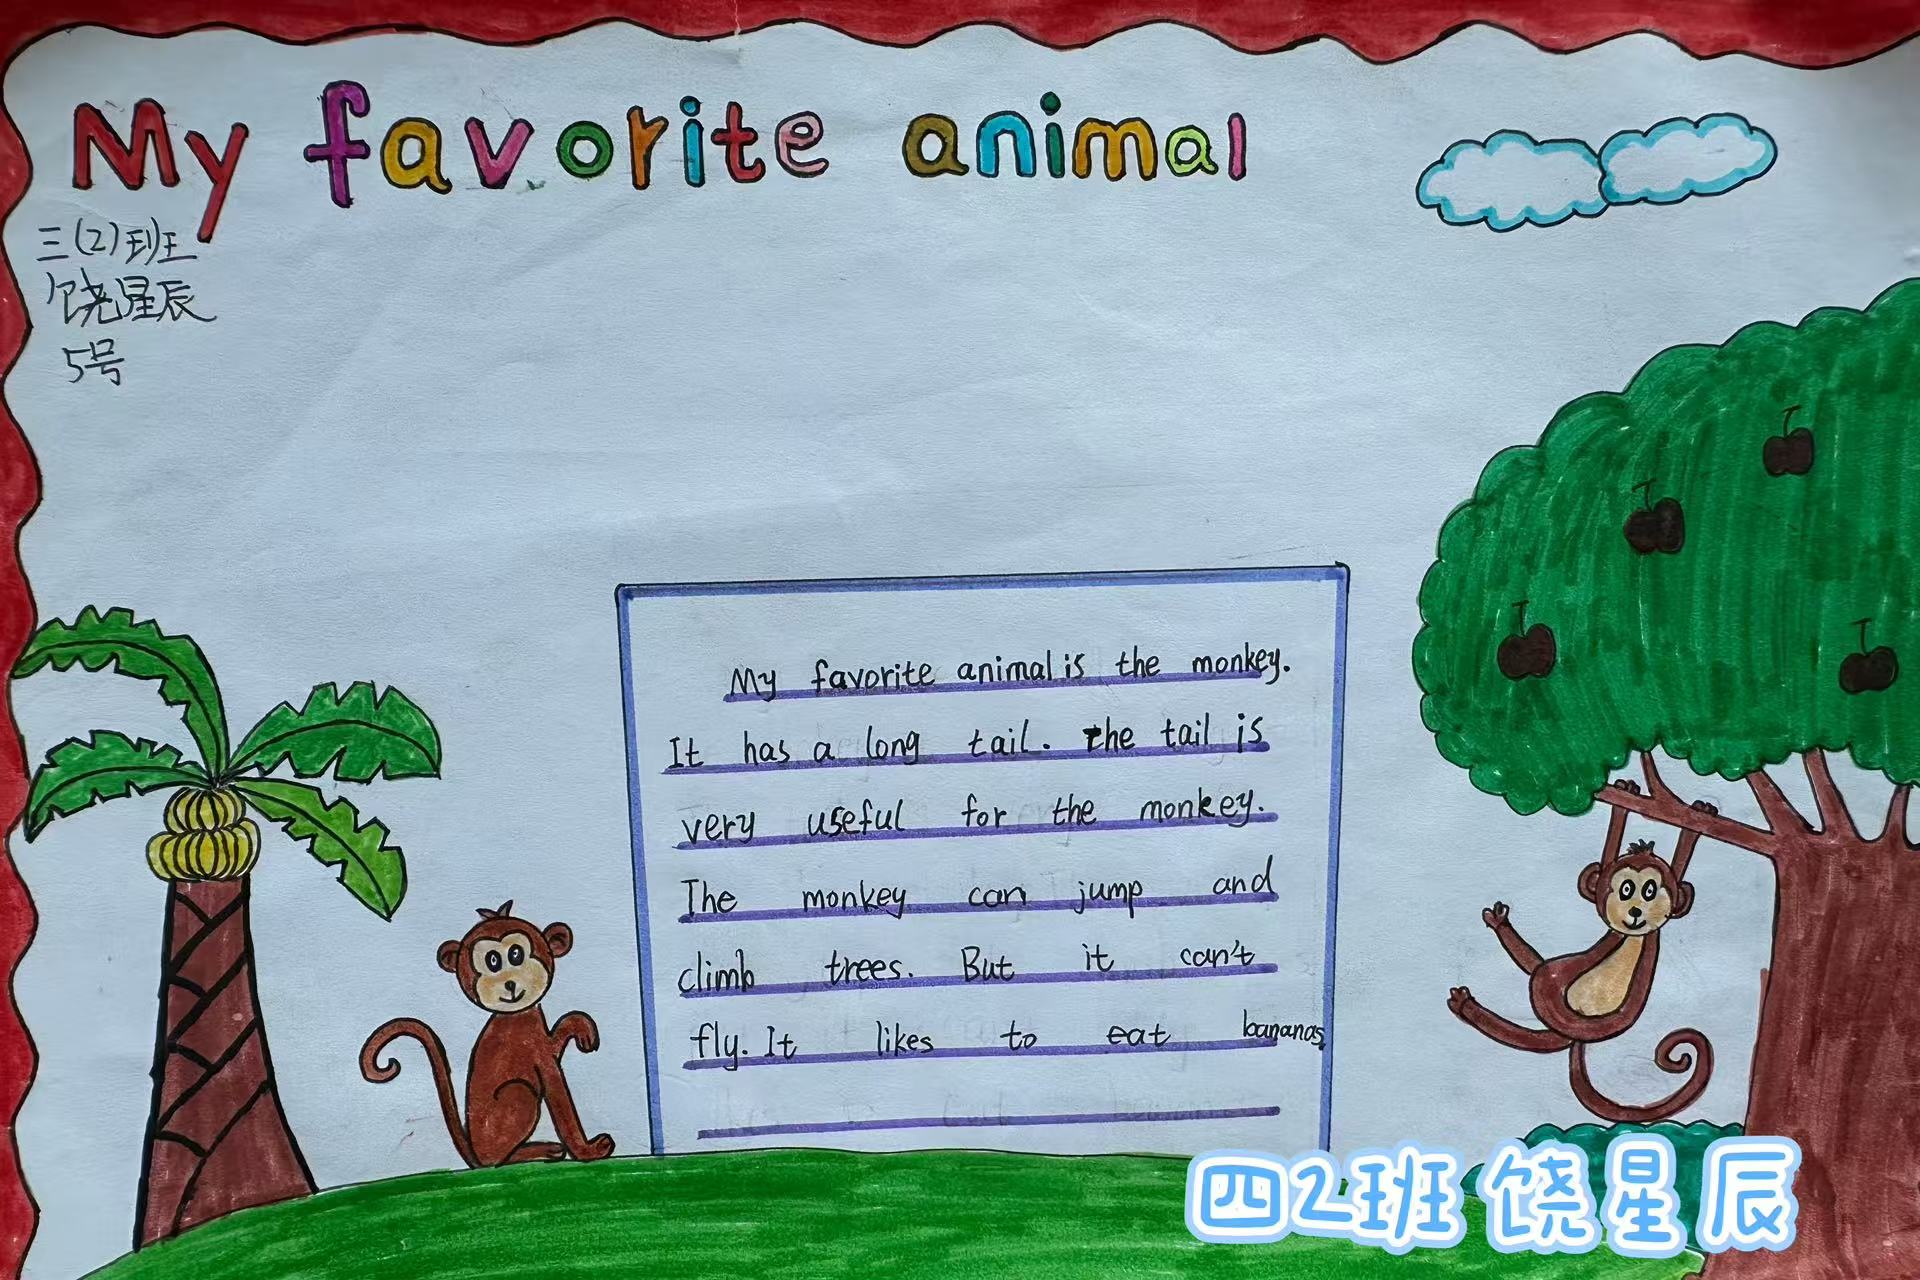 My favorite animal
三(2)班
饶星辰
5号
My favorite animal is the monkey.
It has a long tail. the tail is
very useful for the monkey.
The monkey can jump and
climb trees. But it can't
fly. It likes to eat bananas.
四2班 饶星辰